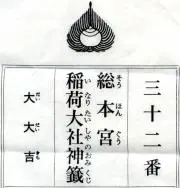 三十二番
総本宮
そうほんぐう
稲荷大社神籤
いなりたいしゃのおみくじ
大大吉
だいだいきち